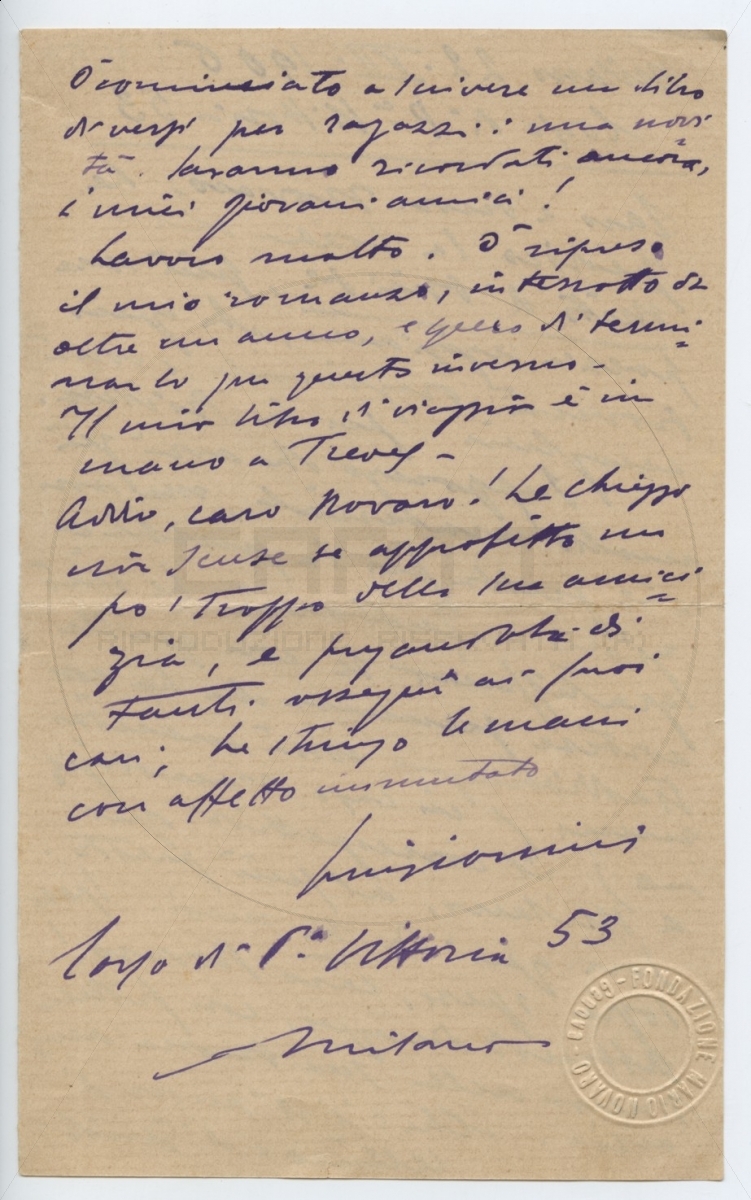 Ò cominciato a scrivere un libro
di versi per ragazzi: una novi
tà. Saranno ricordati ancora,
i miei giovani amici!
Lavoro molto. Ò ripreso
il mio romanzo, interrotto da
oltre un anno, e spero di termi=
narlo per questo inverno-
Il mio libro di viaggi è in
mano a Treves-
Addio, caro Novaro! Le chieggo
scuse se approfitto un
po' troppo della sua amici=
zia, e
tanti ossequi ai suoi
cari, Le stringo le mani
con affetto immutato
Luigi
Corso di P.a Vittoria 53
Milano
FONDAZIONE MARIO NOVARO
RIPRODUZIONE RISERVATA